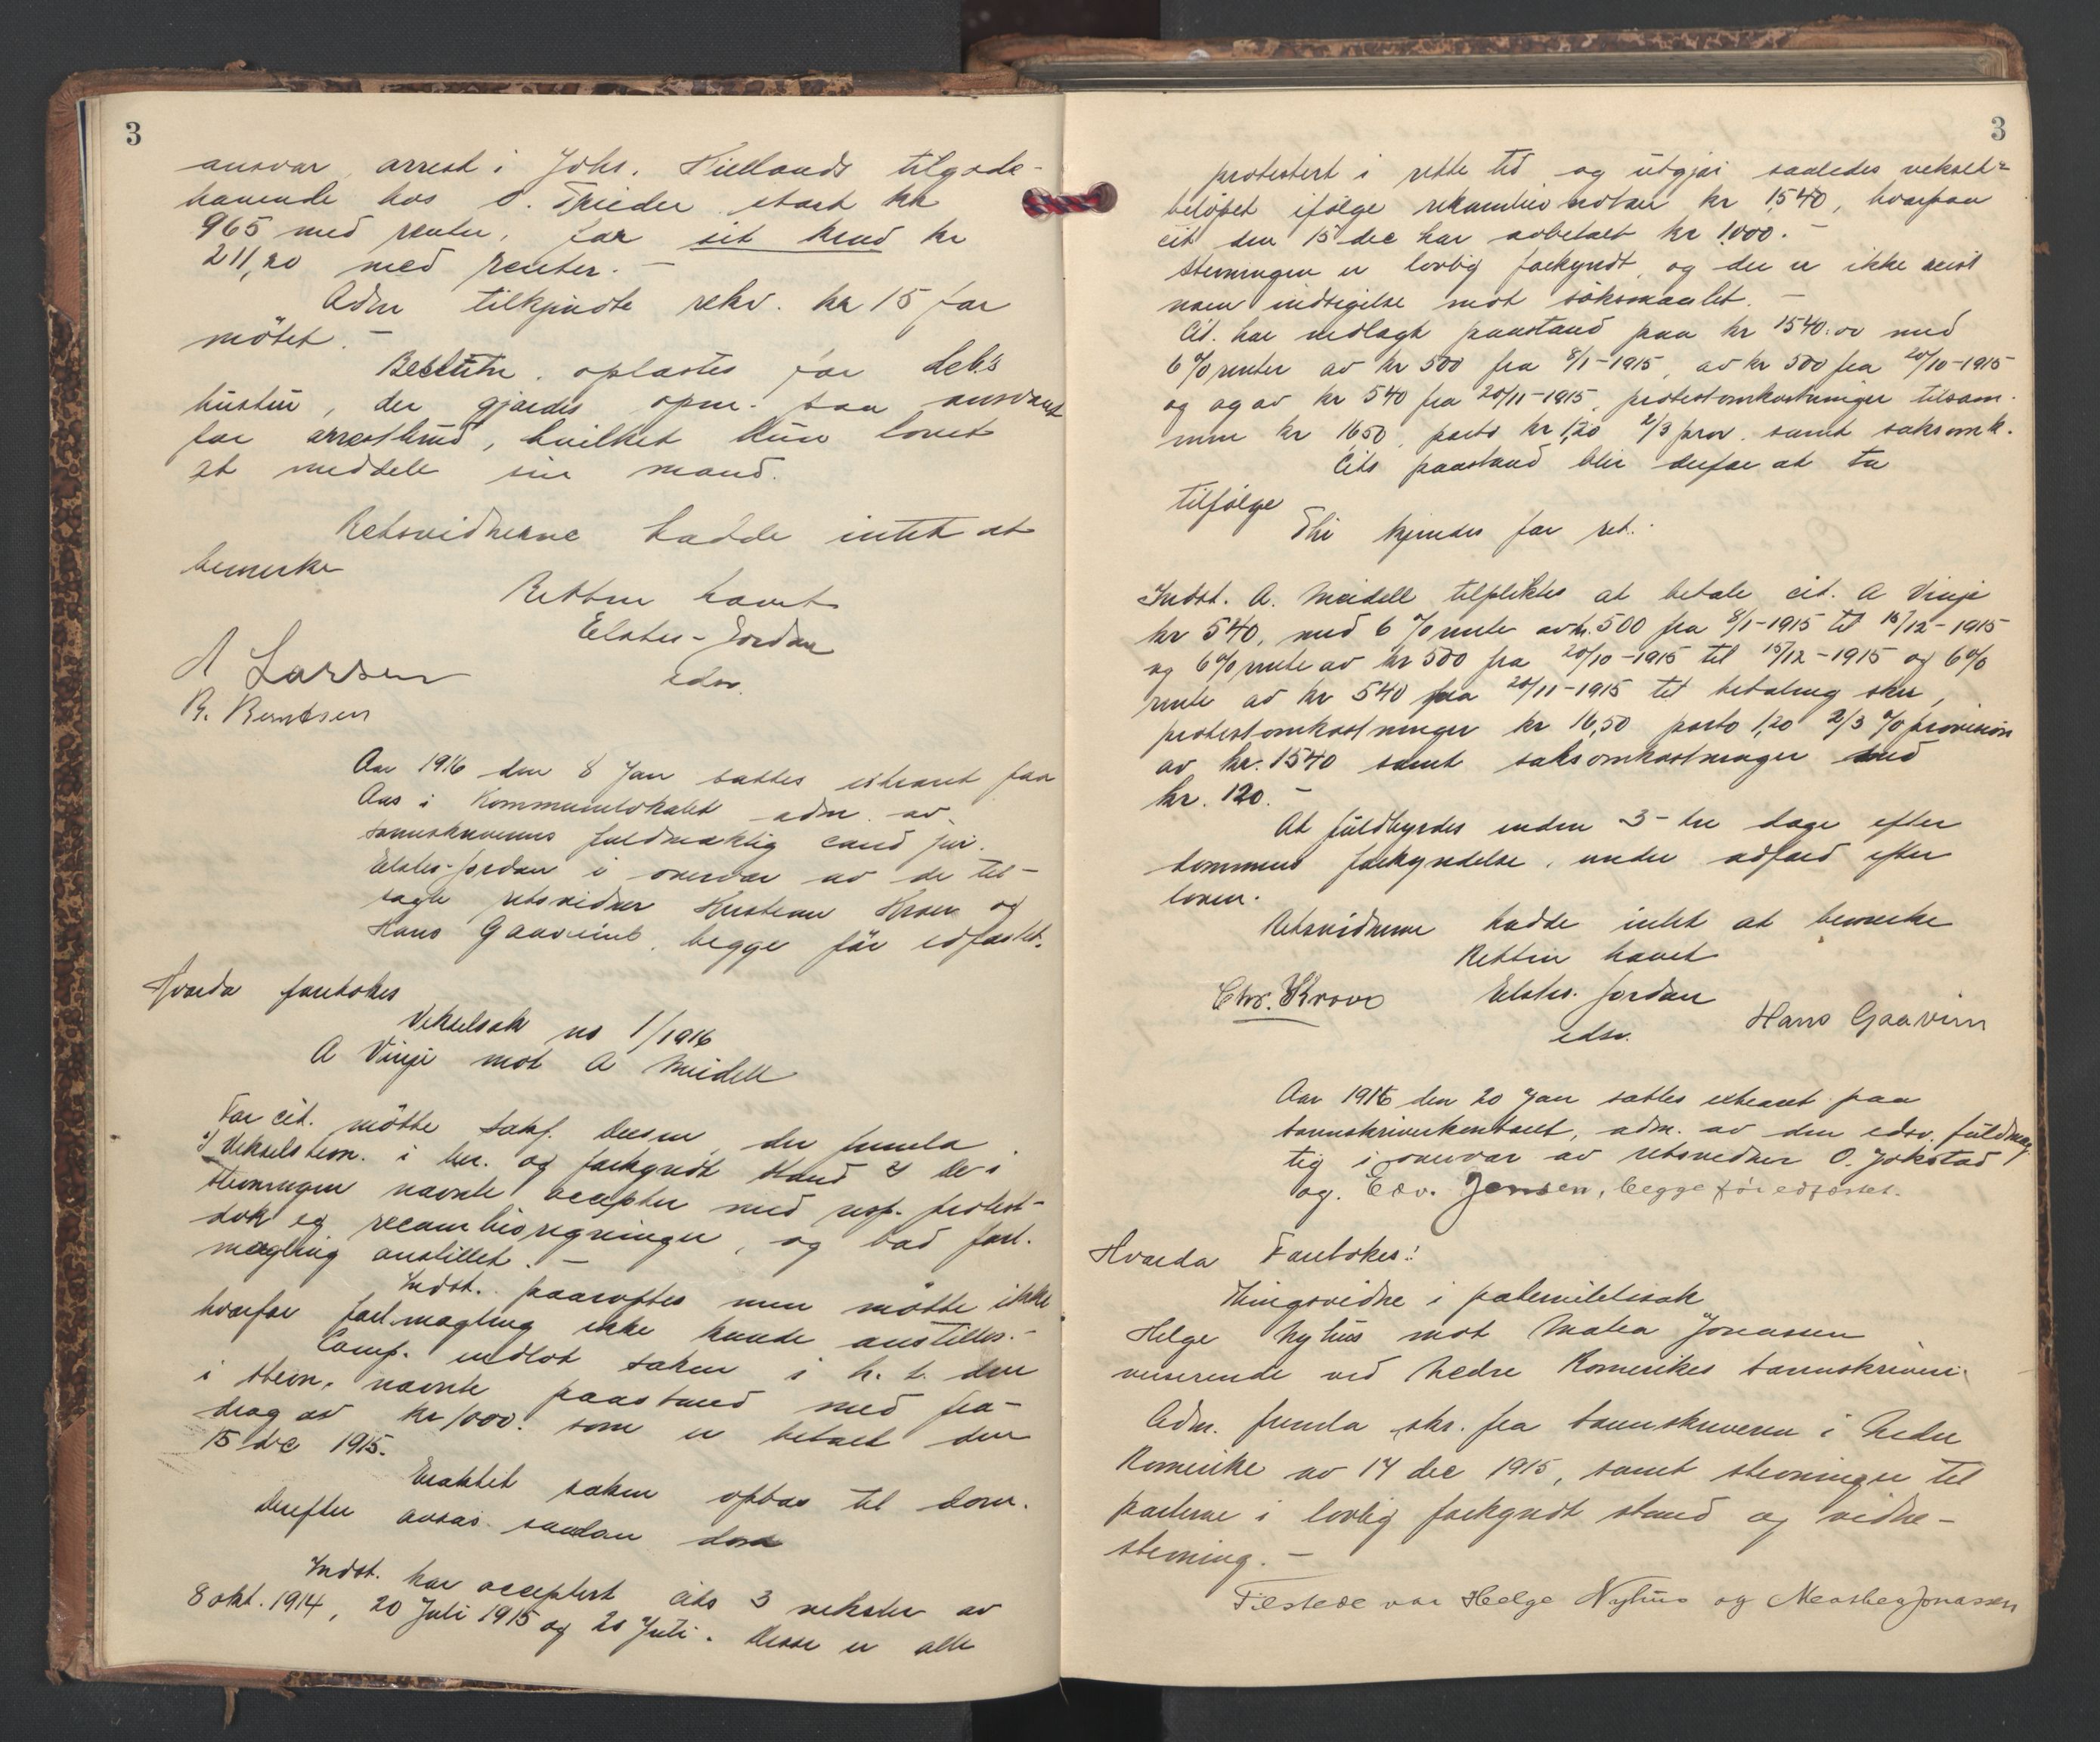 3
ansvar, arrest i Johs. Kiellands tilgode-
havende hos O. Trieder stort kr
965 med renter, for sit krav kr
211,20 med renter. -
Adm tilkjendte rekv. kr 15 for
mötet. -
Beslutn. oplæstes for deb's
hustru, der gjordes opm. paa ansvaret
for arrestbrud, hvilket hun lovet
at meddele sin mand.
Retsvidnerne hadde intet at
bemerke
Retten hævet
Elster-Jordan
edsv.
A Larsen
R. Berntsen
Aar 1916 den 8 Jan sattes extraret paa
Aas i Kommunelokalet adm. av
sorenskriverens fuldmæktig cand jur.
Elster-Jordan i overvær av de til-
sagte retsvidner Kristian Kroer og
Hans Gaarvim, begge för edfæstet.
Hvorda foretokes
Vekselsak no 1/1916
A Vinje mot A Meidell
For cit. mötte sakf. Deisen, der fremla
1) Vekselstevn. i ber. og forkyndt stand 2) de i
stevningen nævnte accepter med resp. protest-
dok og recambioregninger, og bad forl.
mægling anstillet. -
Indst. paaroptes men mötte ikke
hvorfor forl.mægling ikke kunde anstilles. -
Comp. indlot saken i h. t. den
i stevn. nævnte paastand med fra-
drag av kr 1000. som er betalt den
15 dec 1915.
Eraktet saken optas til dom.
Derefter avsas saadan dom
Indst. har acceptert cits 3 veksler av
8 okt. 1914, 20 Juli 1915 og 20 Juli. Disse er alle
3
protestert i rette tid og utgjör saaledes veksel-
belöpet ifölge rekambionotaer kr 1540, hvorpaa
cit den 15 dec har avbetalt kr 1000. -
Stevningen er lovlig forkyndt, og der er ikke reist
noen indsigelse mot söksmaalet. -
Cit. har nedlagt paastand paa kr 1540.00 med
6 % renter av kr 500 fra 8/1-1915, av kr 500 fra 20/10-1915
og og av kr 540 fra 20/11-1915, protestomkostninger tilsam-
men kr 1650, porto kr 1,20 2/3 prov. samt saksomk.
Cits paastand blir derfor at ta
tilfölge
Thi kjendes for ret:
Indst. A. Meidell tilpliktes at betale cit. A Vinje
kr 540, med 6 % rente av kr. 500 fra 8/1-1915 til 15/12-1915
og 6 % rente av kr 500 fra 20/10-1915 til 15/12-1915 og 6 %
rente av kr 540 fra 20/11-1915 til betaling sker,
protestomkostninger kr 16,50 porto 1,20 2/3 % provision
av kr. 1540 samt saksomkostninger med
kr. 120. -
At fuldbyrdes inden 3- tre dage efter
dommens forkyndelse, under adfærd efter
loven.
Retsvidnerne hadde intet at bemerke
Retten hævet
Chr. Kroer
Elster-Jordan
edsv.
Hans Gaarvim
Aar 1916 den 20 Jan sattes extraret paa
sorenskriverkontoret, adm. av den edsv. fuldmæg
tig i overvær av retsvidner O. Jokstad
og. Edv. Jensen, begge för edfæstet.
Hvorda Foretokes:
Thingsvidne i paternitetssak
Helge Nyhus mot Matea Jonassen
verserende ved Nedre Romerikes sorenskriveri.
Adm. fremla skr. fra sorenskriveren i Nedre
Romerike av 14 dec 1915, samt stevninger til
parterne i lovlig forkyndt stand og vidne-
stevning. -
Tilstede var Helge Nyhus og Mathea Jonassen